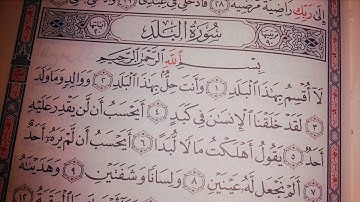 إِلَىٰ رَبِّكِ رَاضِيَةً مَّرْضِيَّةً ٢٨ فَادْخُلِي فِي عِبَادِي
سُورَةُ الْبَلَدِ
بِسْمِ اللَّهِ الرَّحْمَٰنِ الرَّحِيمِ
لَا أُقْسِمُ بِهَٰذَا الْبَلَدِ ١ وَأَنتَ حِلٌّ بِهَٰذَا الْبَلَدِ ٢ وَوَالِدٍ وَمَا وَلَدَ
٣ لَقَدْ خَلَقْنَا الْإِنسَانَ فِي كَبَدٍ ٤ أَيَحْسَبُ أَن لَّن يَقْدِرَ عَلَيْهِ
أَحَدٌ ٥ يَقُولُ أَهْلَكْتُ مَالًا لُّبَدًا ٦ أَيَحْسَبُ أَن لَّمْ يَرَهُ أَحَدٌ
٧ أَلَمْ نَجْعَل لَّهُ عَيْنَيْنِ ٨ وَلِسَانًا وَشَفَتَيْنِ ٩ وَهَدَيْنَاهُ